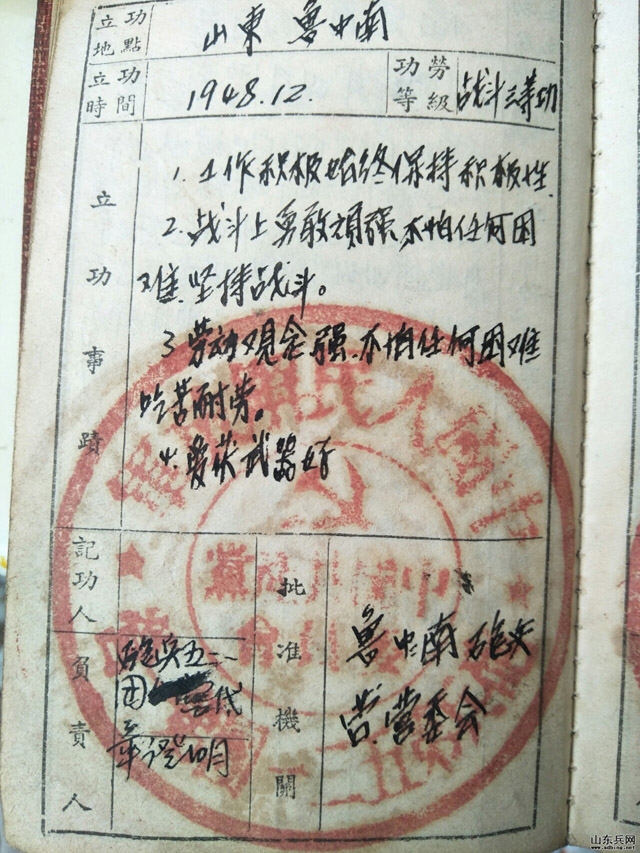 立功地點 山東 魯中南
立功時間 1948.12. 功勞等級 战斗三等功
立功事蹟
1. 工作积极始终保持积极性
2. 战斗上勇敢頑强不怕任何困
难坚持战斗。
3 劳动观念强.不怕任何困难
吃苦耐劳。
4. 爱护武器好
記功人負責人
批准機關
魯中南砲兵
营.营委会
山东兵网
www.sdbing.net